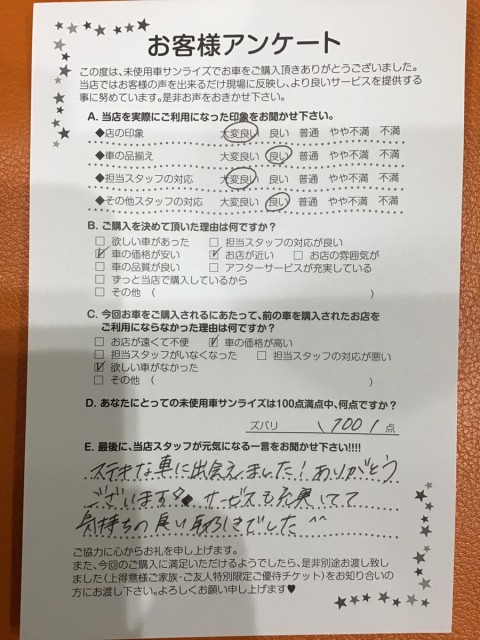 お客様アンケート
この度は、未使用車サンライズでお車をご購入頂きありがとうございました。
当店ではお客様の声を出来るだけ現場に反映し、より良いサービスを提供する
事に努めています。是非お声をおきかせ下さい。
A. 当店を実際にご利用になった印象をお聞かせ下さい。
◆店の印象 大変良い 良い 普通 やや不満 不満
◆車の品揃え 大変良い 良い 普通 やや不満 不満
◆担当スタッフの対応 大変良い 良い 普通 やや不満 不満
◆その他スタッフの対応 大変良い 良い 普通 やや不満 不満
B. ご購入を決めて頂いた理由は何ですか？
□ 欲しい車があった □ 担当スタッフの対応が良い
☑ 車の価格が安い ☑ お店が近い □ お店の雰囲気が
□ 車の品質が良い □ アフターサービスが充実している
□ ずっと当店で購入しているから
□ その他 ( )
C. 今回お車をご購入されるにあたって、前の車を購入されたお店を
ご利用にならなかった理由は何ですか？
□ お店が遠くて不便 ☑ 車の価格が高い
□ 担当スタッフがいなくなった □ 担当スタッフの対応が悪い
☑ 欲しい車がなかった
□ その他 ( )
D. あなたにとっての未使用車サンライズは100点満点中、何点ですか？
ズバリ \ 100 / 点
E. 最後に、当店スタッフが元気になる一言をお聞かせ下さい!!!!
ステキな車に出会えました！ありがとう
ございます サービスも充実してて
気持ちの良い取引きでした^^
ご協力に心からお礼を申し上げます。
また、今回のご購入に満足いただけるようでしたら、是非別途お渡し致し
ました（上得意様ご家族・ご友人特別限定ご優待チケット）をお知り合いの
方にお渡し下さい。よろしくお願い申し上げます♥